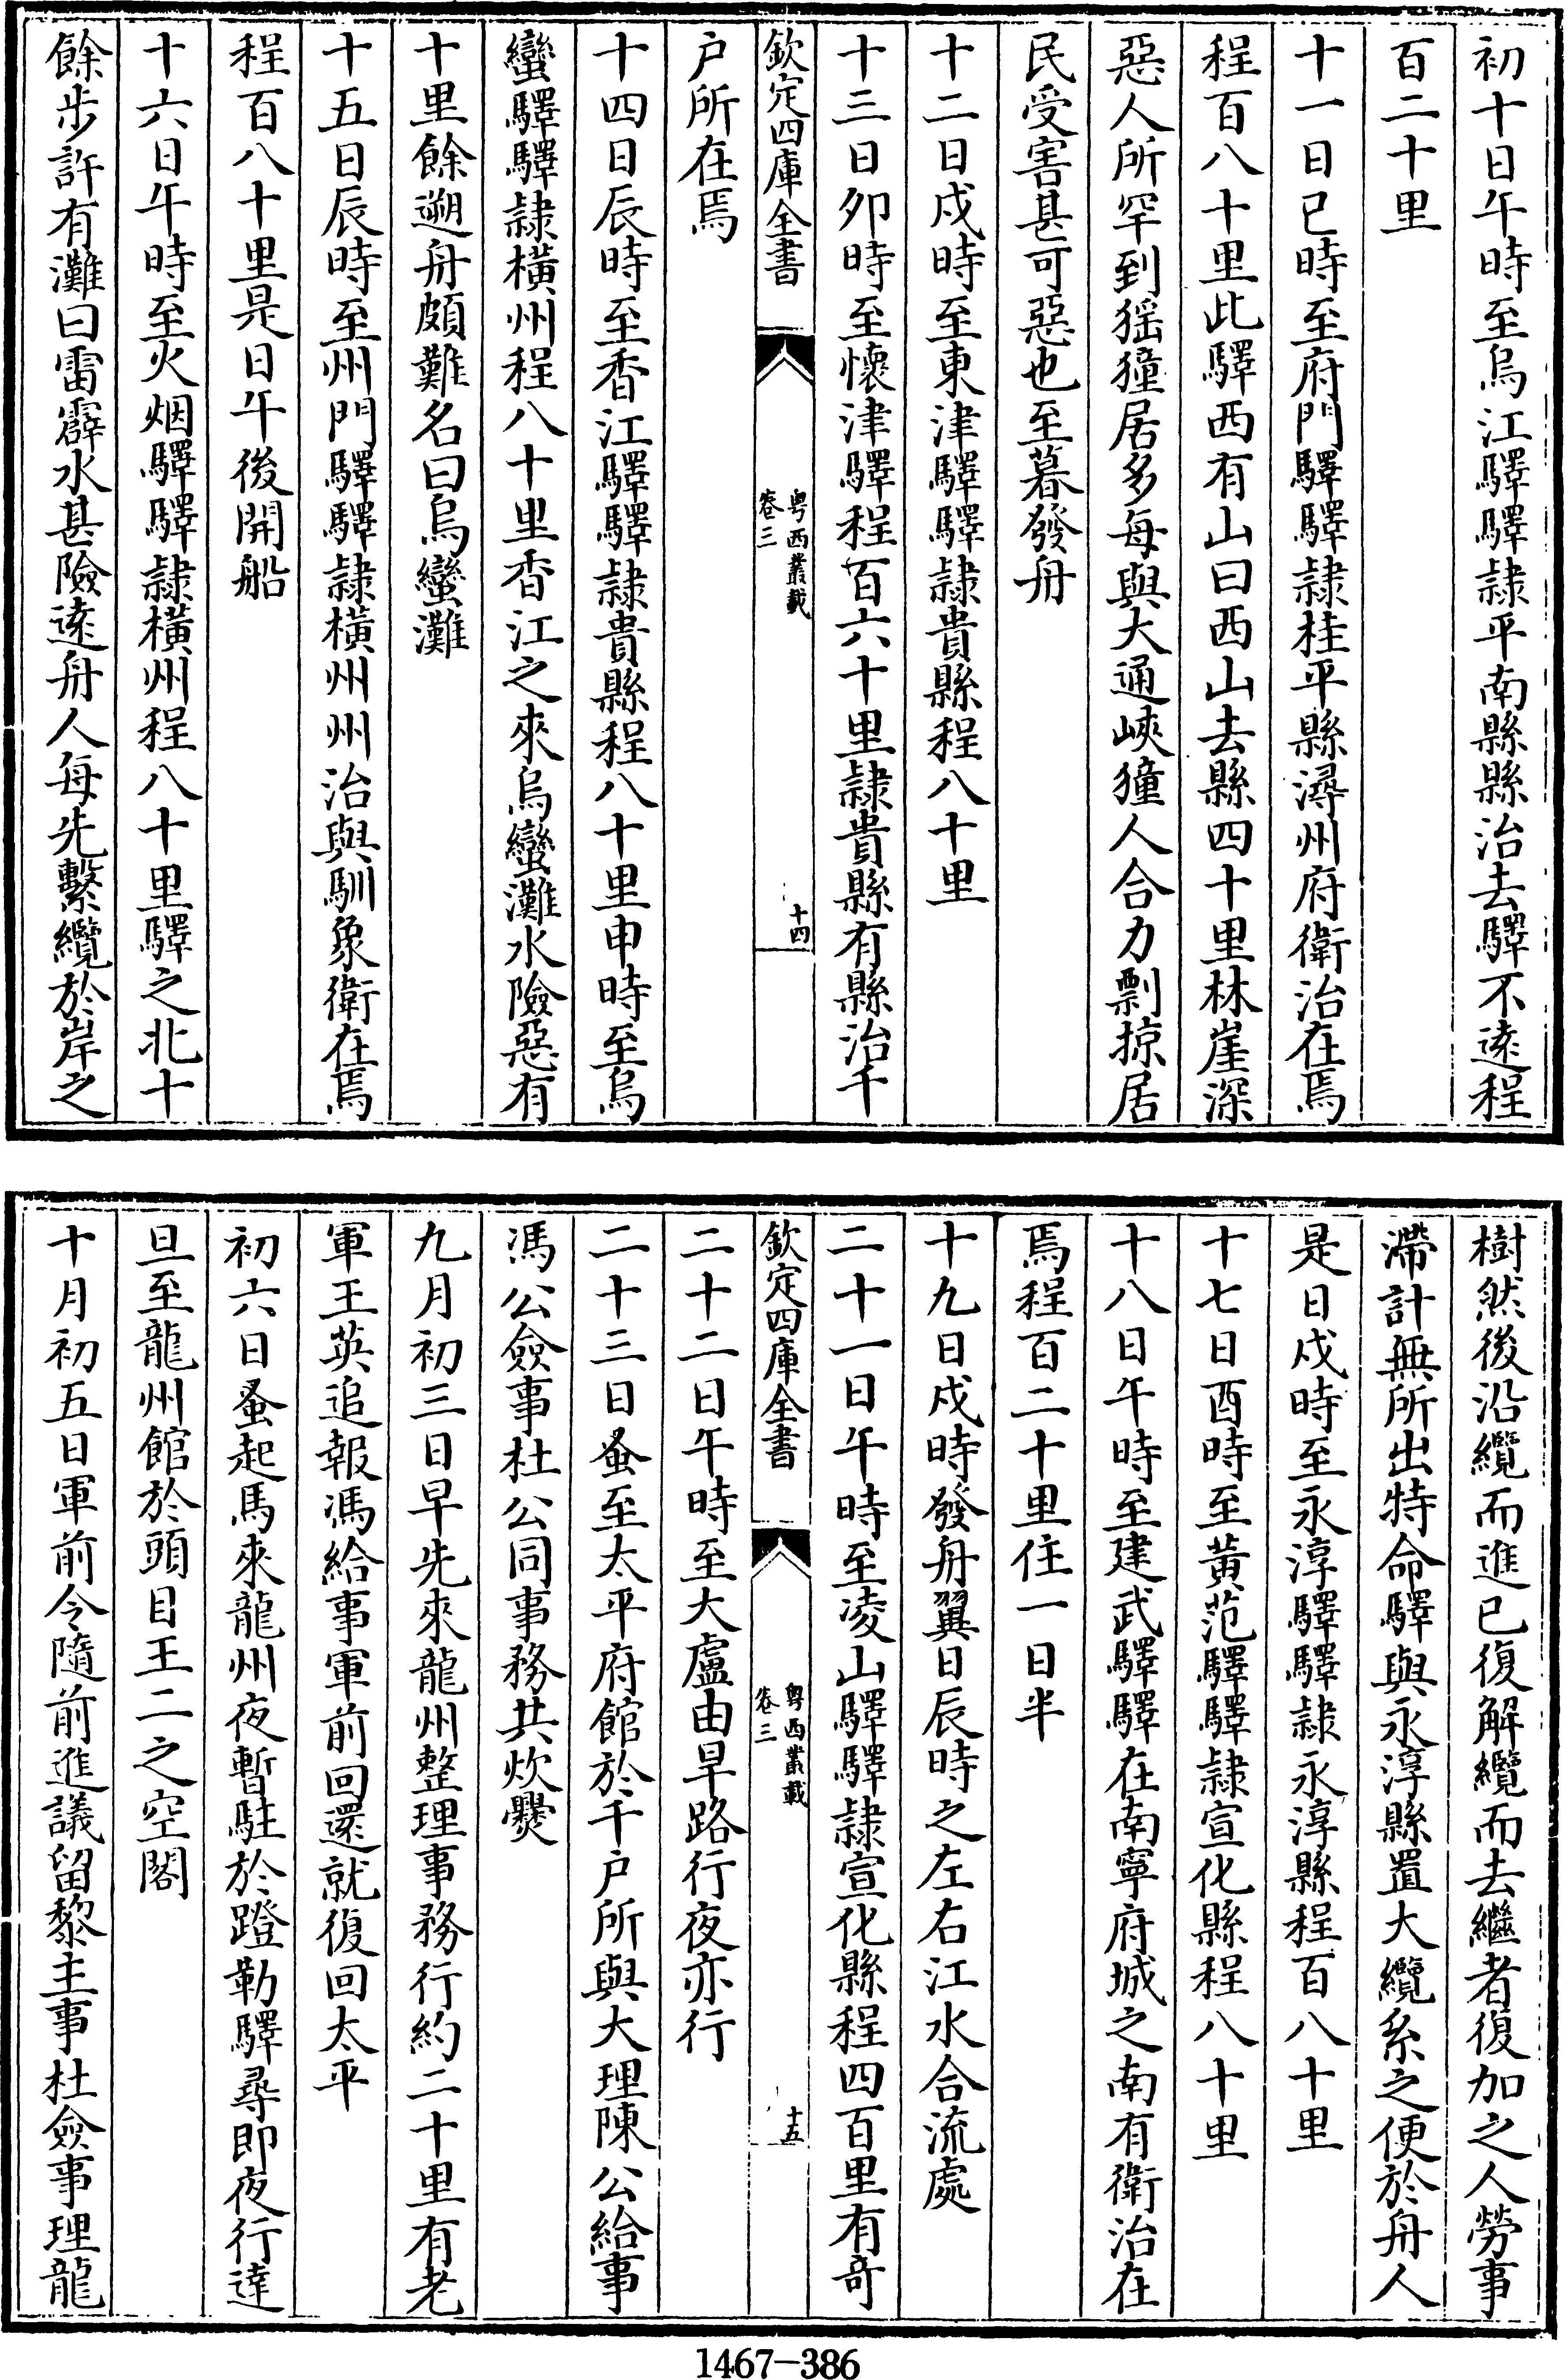 初十日午時至烏江驛驛隷平南縣縣治去驛不逺程
百二十里
十一日巳時至府門驛驛隷桂平縣潯州府衛治在焉
程百八十里此驛西有山曰西山去縣四十里林崖深
惡人所罕到猺獞居多每與大通峽獞人合力剽掠居
民受害甚可惡也至暮發舟
十二日戍時至東津驛驛隷貴縣程八十里
十三日夘時至懷津驛程百六十里隷貴縣有縣治千
欽定四庫全書
粤西叢載
卷三
十四
户所在焉
十四日辰時至香江驛驛隷貴縣程八十里申時至烏
蠻驛驛隷橫州程八十里香江之來烏蠻灘水險惡有
十里餘遡舟頗難名曰烏蠻灘
十五日辰時至州門驛驛隷橫州州治與馴象衛在焉
程百八十里是日午後開船
十六日午時至火烟驛驛隷橫州程八十里驛之北十
餘步許有灘曰雷霹水甚險逺舟人每先繫纜於岸之
樹然後沿纜而進已復解纜而去繼者復加之人勞事
滯計無所出特命驛與永淳縣置大纜系之便於舟人
是日戍時至永淳驛驛隷永淳縣程百八十里
十七日酉時至黃范驛驛隷宣化縣程八十里
十八日午時至建武驛驛在南寧府城之南有衛治在
焉程百二十里住一日半
十九日戍時發舟翼日辰時之左右江水合流處
二十一日午時至凌山驛驛隷宣化縣程四百里有奇
欽定四庫全書
粤西叢載
卷三
十五
二十二日午時至大盧由早路行夜亦行
二十三日蚤至太平府館於千户所與大理陳公給事
馮公僉事杜公同事務共炊爨
九月初三日早先來龍州整理事務行約二十里有老
軍王英追報馮給事軍前回還就復回太平
初六日蚤起馬來龍州夜暫駐於蹬勒驛尋即夜行達
旦至龍州館於頭目王二之空閣
十月初五日軍前令隨前進議留黎主事杜僉事理龍
1467-386